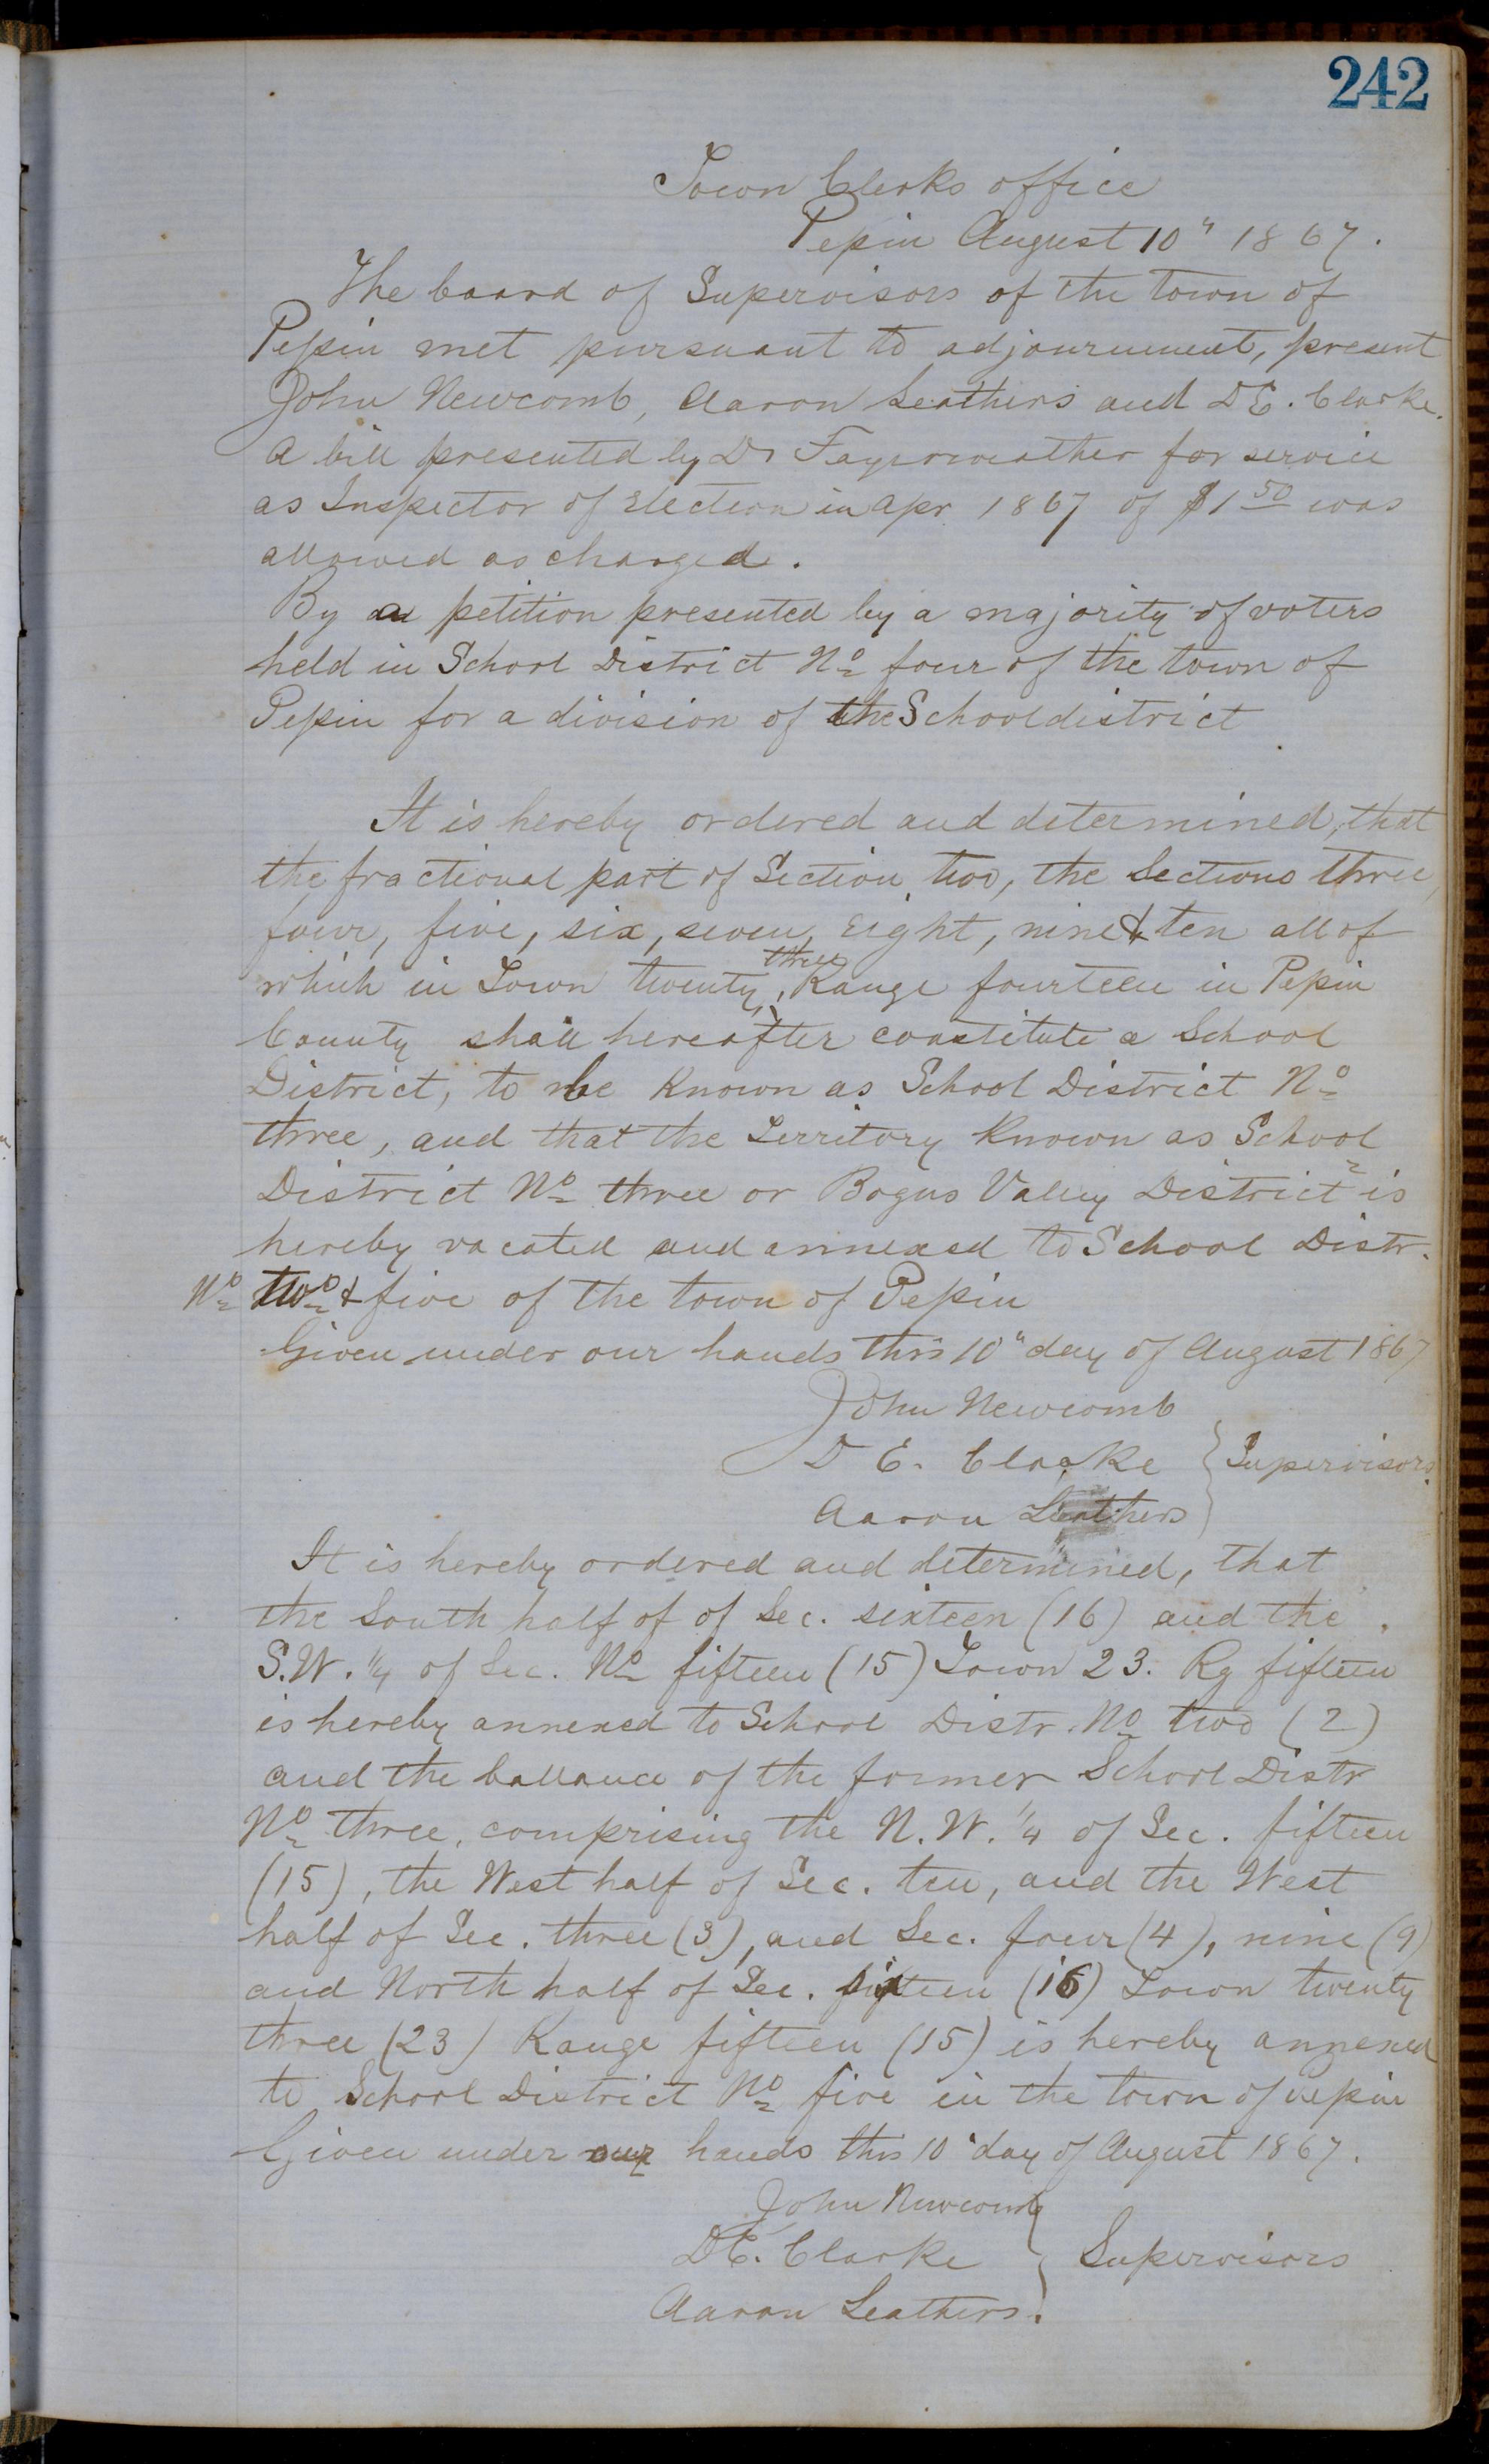 242
Town Clerks office
Pepin August 10" 1867.
The board of Supervisors of the town of
Pepin met pursuant to adjournment, present
John Newcomb, Aaron Leathers and D E. Clarke.
A bill presented by Dr Fayerweather for service
as Inspector of Election in Apr 1867 of $1 50 was
allowed as charged.
By a petition presented by a majority of voters
held in School District No four of the town of
Pepin for a division of the School district
It is hereby ordered and determined, that
the fractional part of Section two, the Sections three,
four, five, six, seven, Eight, nine & ten all of
three
which in Town twenty, Range fourteen in Pepin
County shall hereafter constitute a School
District, to be Known as School District No
three, and that the Territory Known as School
District No three or Bogus Valley District is
hereby vacated and annexed to School Distr.
No two & five of the town of Pepin
Given under our hands this 10" day of August 1867
John Newcomb
D E. Clarke } Supervisors
Aaron Leathers
It is hereby ordered and determined, that
the South half of of Sec. sixteen (16) and the
S.W. 1/4 of Sec. No fifteen (15) Town 23. Rg fifteen
is hereby annexed to School Distr. No two (2)
and the ballance of the former School Distr
No three, comprising the N.W. 1/4 of Sec. fifteen
(15), the West half of Sec. ten, and the West
half of Sec. three (3), and Sec. four (4), nine (9)
and North half of Sec. sixteen (16) Town twenty
three (23) Range fifteen (15) is hereby annexed
to School District No five in the town of Pepin
Given under our hands this 10" day of August 1867.
John Newcomb
D E. Clarke } Supervisors
Aaron Leathers.